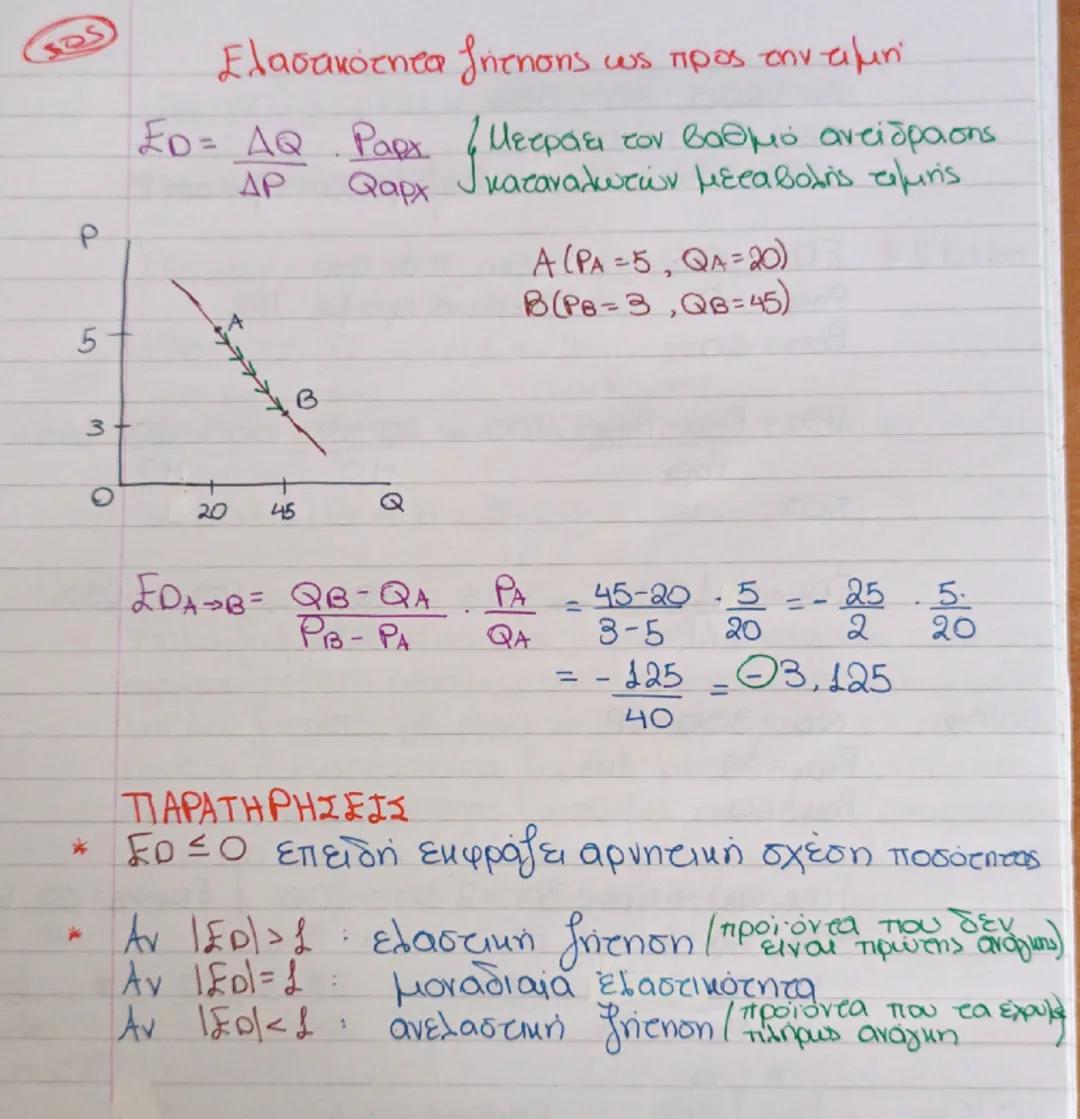 SOS
Ελαστικότητα ζήτησης ως προς την τιμή
ED = ΔQ/ΔP · Pαρχ/Qαρχ
Μετράει τον βαθμό αντίδρασης
καταναλωτών μεταβολής τιμής
P
A (PA = 5, QA = 20)
B (PB = 3, QB = 45)
A
5
B
3
O
20 45 Q
EDA→B = QB - QA / PB - PA · PA/QA = 45-20 / 3-5 · 5/20 = - 25/2 · 5/20
= - 125/40 = -3,125
ΠΑΡΑΤΗΡΗΣΕΙΣ
* ED ≤ 0 επειδή εκφράζει αρνητική σχέση ποσότητας
* Αν |ED| > 1 : ελαστική ζήτηση (προϊόντα που δεν
είναι πρώτης ανάγκης)
Αν |ED| = 1 : μοναδιαία ελαστικότητα
Αν |ED| < 1 : ανελαστική ζήτηση (προϊόντα που τα έχουμε
πλήρως ανάγκη)